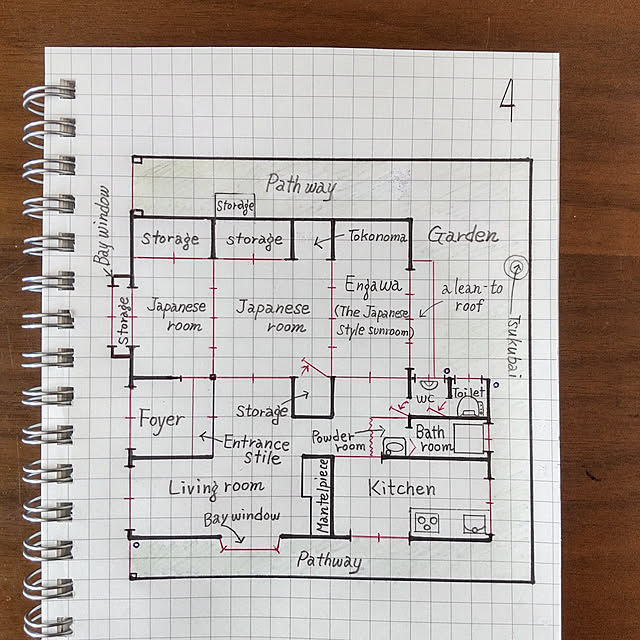 4
Pathway
Storage
Bay window
Storage
Storage
Tokonoma
Garden
Engawa
(The Japanese
Style sunroom)
a lean-to
roof
Japanese
room
Japanese
room
Storage
Tsukubai
Foyer
Storage
WC
Toilet
Entrance
Stile
Powder
room
Bath
room
Living room
Mantelpiece
Kitchen
Bay window
Pathway